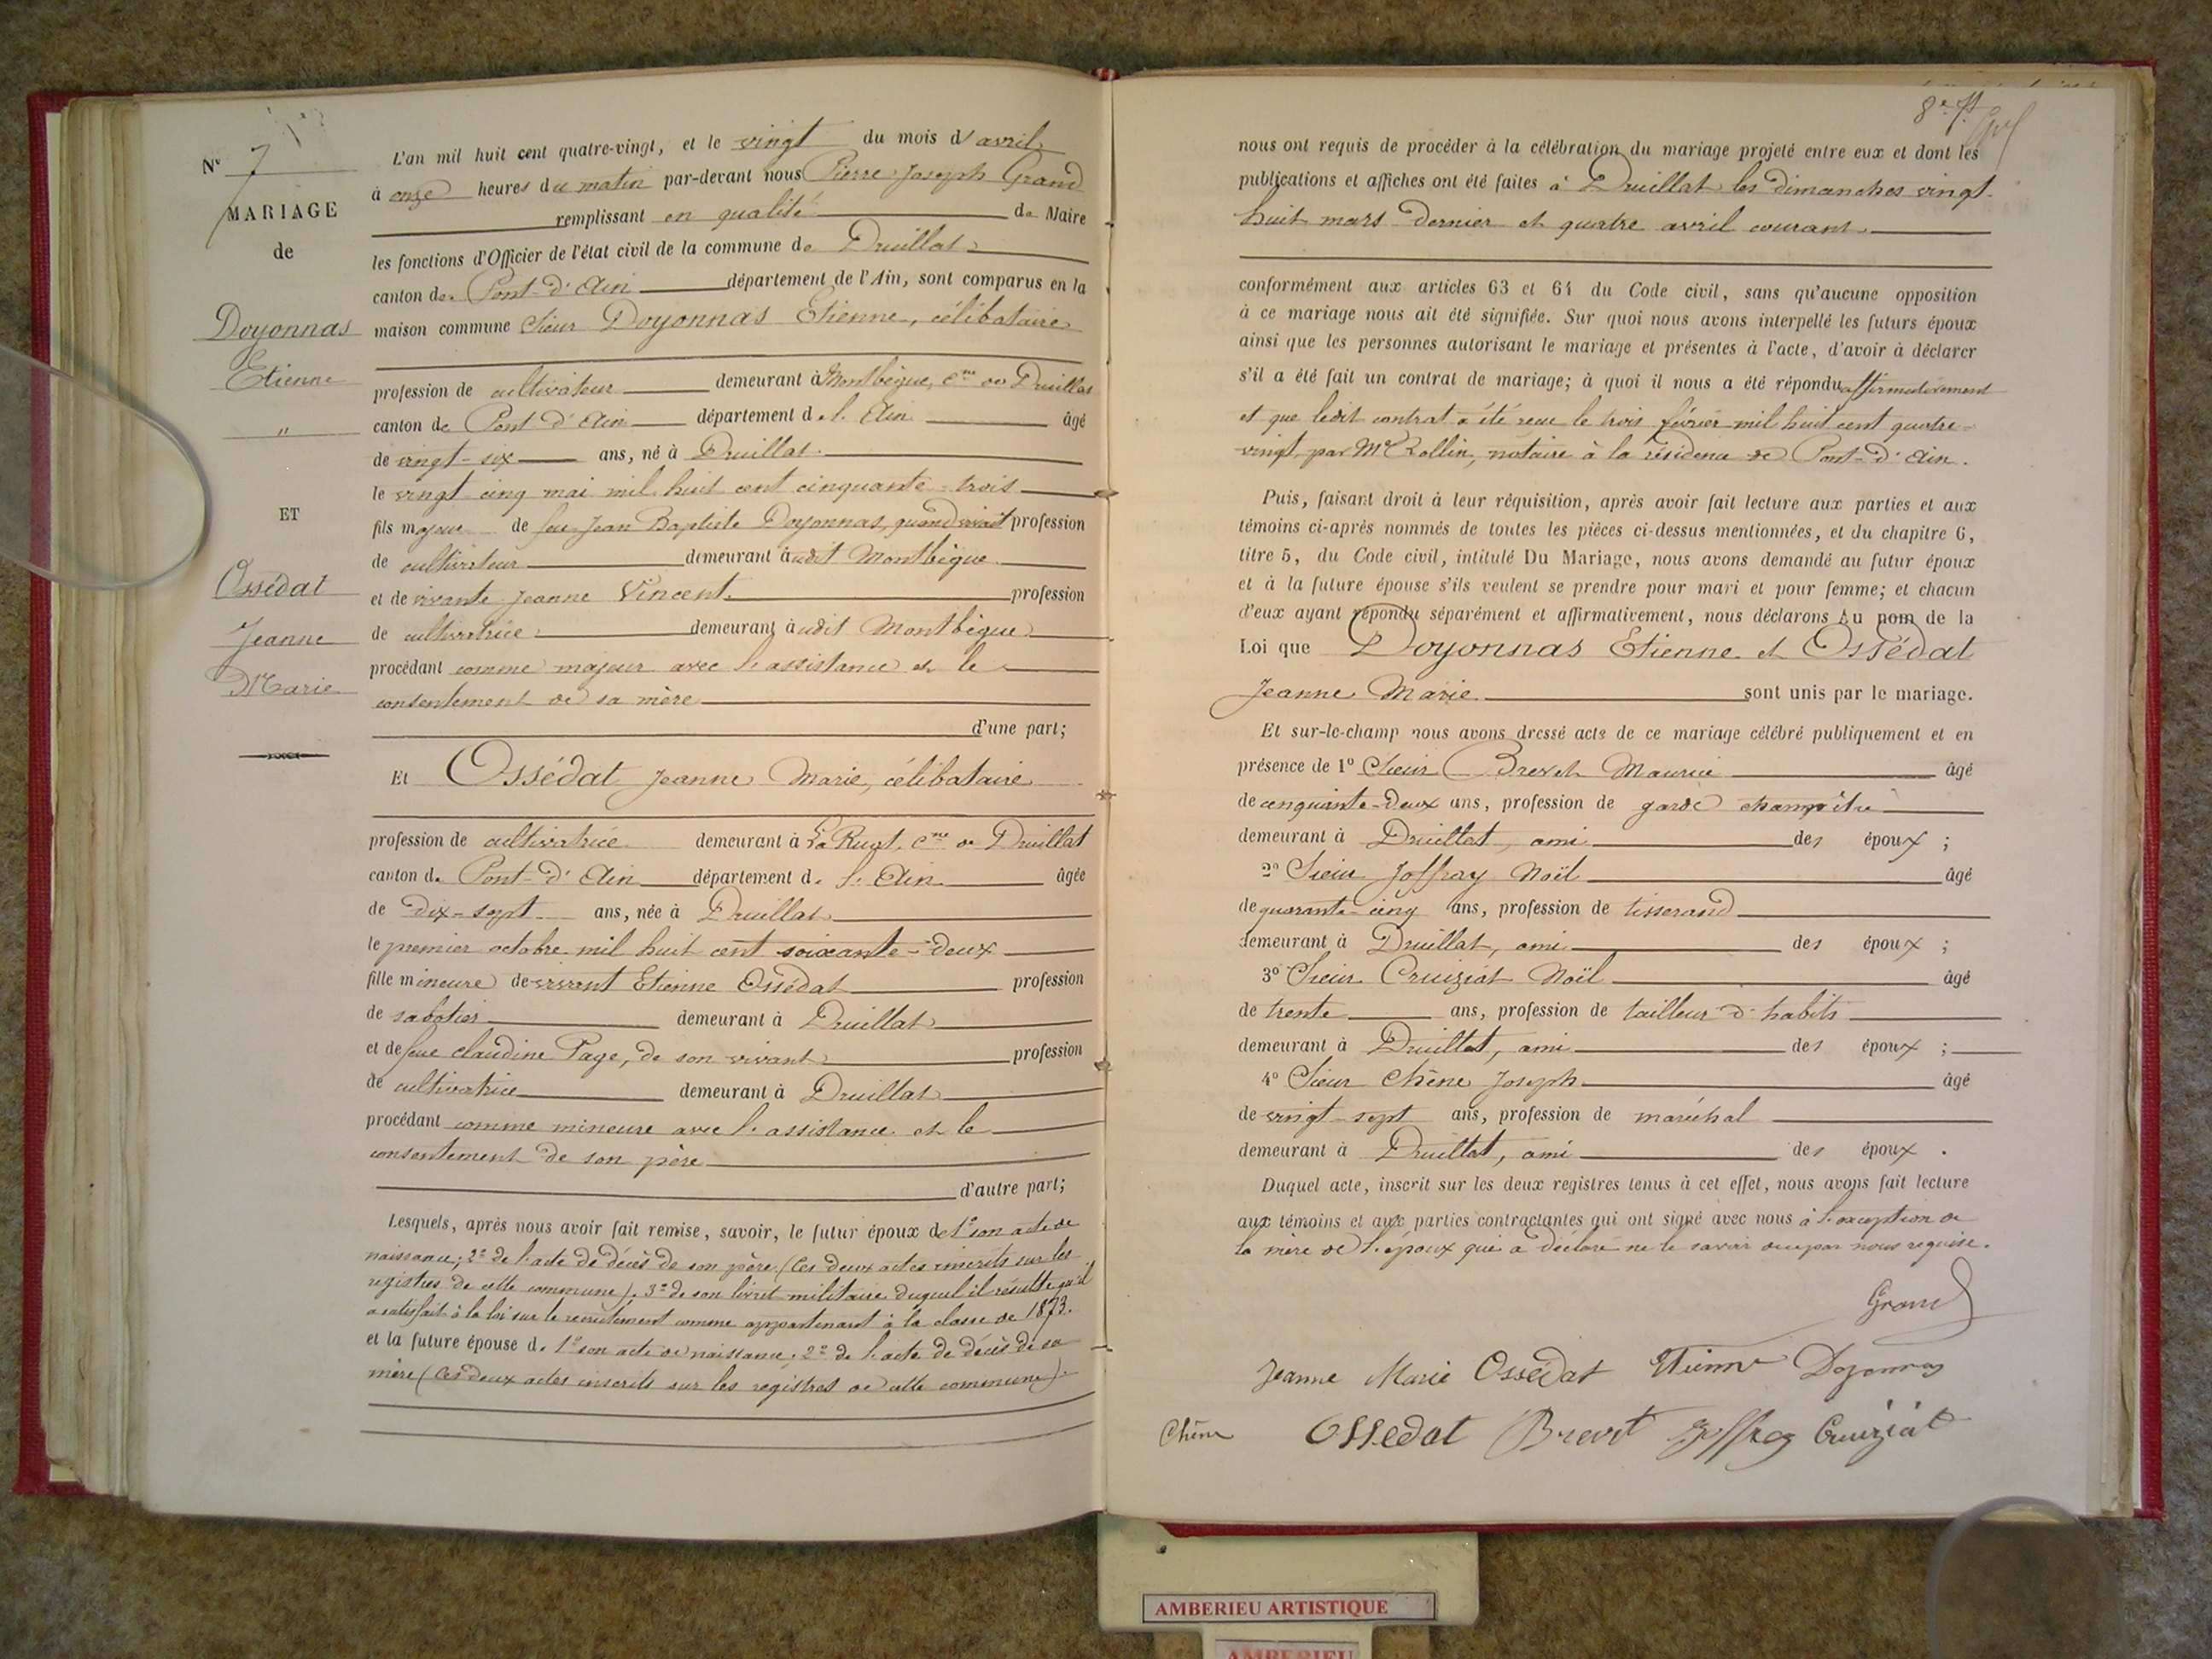 N° 7
MARIAGE
de
Doyonnas
Etienne
"
ET
Ossédat
Jeanne
Marie
L'an mil huit cent quatre-vingt, et le vingt du mois d'avril
à onze heures du matin par-devant nous Pierre Joseph Grand
remplissant en qualité de Maire
les fonctions d'Officier de l'état civil de la commune de Druillat
canton de Pont-d'Ain département de l'Ain, sont comparus en la
maison commune Sieur Doyonnas Etienne, célibataire
profession de cultivateur demeurant à Montbègue, cne de Druillat
canton de Pont d'Ain département de l'Ain âgé
de vingt-six ans, né à Druillat
le vingt cinq mai mil huit cent cinquante-trois
fils majeur de feu Jean Baptiste Doyonnas, quand vivait profession
de cultivateur demeurant audit Montbègue
et de vivante Jeanne Vincent profession
de cultivatrice demeurant audit Montbègue
procédant comme majeur avec l'assistance et le
consentement de sa mère
d'une part;
Et Ossédat Jeanne Marie, célibataire
profession de cultivatrice demeurant à La Ruat, cne de Druillat
canton de Pont-d'Ain département de l'Ain âgée
de dix-sept ans, née à Druillat
le premier octobre mil huit cent soixante-deux
fille mineure de vivant Etienne Ossédat profession
de sabotier demeurant à Druillat
et de feue Claudine Page, de son vivant profession
de cultivatrice demeurant à Druillat
procédant comme mineure avec l'assistance et le
consentement de son père
d'autre part;
Lesquels, après nous avoir fait remise, savoir, le futur époux de 1° son acte de
naissance; 2° de l'acte de décès de son père (Ces deux actes inscrits sur les
registres de cette commune). 3° de son livret militaire duquel il résulte qu'il
a satisfait à la loi sur le recrutement comme appartenant à la classe de 1873.
et la future épouse d. 1° son acte de naissance; 2° de l'acte de décès de sa
mère (Ces deux actes inscrits sur les registres de cette commune).
8e f.
nous ont requis de procéder à la célébration du mariage projeté entre eux et dont les
publications et affiches ont été faites à Druillat les dimanches vingt
huit mars dernier et quatre avril courant
conformément aux articles 63 et 64 du Code civil, sans qu'aucune opposition
à ce mariage nous ait été signifiée. Sur quoi nous avons interpellé les futurs époux
ainsi que les personnes autorisant le mariage et présentes à l'acte, d'avoir à déclarer
s'il a été fait un contrat de mariage; à quoi il nous a été répondu affirmativement
et que ledit contrat a été reçu le trois février mil huit cent quatre-
vingt par Me Rollin, notaire à la résidence de Pont-d'Ain.
Puis, faisant droit à leur réquisition, après avoir fait lecture aux parties et aux
témoins ci-après nommés de toutes les pièces ci-dessus mentionnées, et du chapitre 6,
titre 5, du Code civil, intitulé Du Mariage, nous avons demandé au futur époux
et à la future épouse s'ils veulent se prendre pour mari et pour femme; et chacun
d'eux ayant répondu séparément et affirmativement, nous déclarons Au nom de la
Loi que Doyonnas Etienne et Ossédat
Jeanne Marie sont unis par le mariage.
Et sur-le-champ nous avons dressé acte de ce mariage célébré publiquement et en
présence de 1° Sieur Brevet Maurice âgé
de cinquante-deux ans, profession de garde champêtre
demeurant à Druillat, ami des époux ;
2° Sieur Joffray Noël âgé
de quarante-cinq ans, profession de tisserand
demeurant à Druillat, ami des époux ;
3° Sieur Cruiziat Noël âgé
de trente ans, profession de tailleur d'habits
demeurant à Druillat, ami des époux ;
4° Sieur Chêne Joseph âgé
de vingt-sept ans, profession de maréchal
demeurant à Druillat, ami des époux .
Duquel acte, inscrit sur les deux registres tenus à cet effet, nous avons fait lecture
aux témoins et aux parties contractantes qui ont signé avec nous à l'exception de
la mère de l'époux qui a déclaré ne le savoir de ce par nous requise.
Grand
Jeanne Marie Ossédat Etienne Doyonnas
Chêne Ossedat Brevet Joffray Cruiziat
AMBERIEU ARTISTIQUE
AMBERIEU